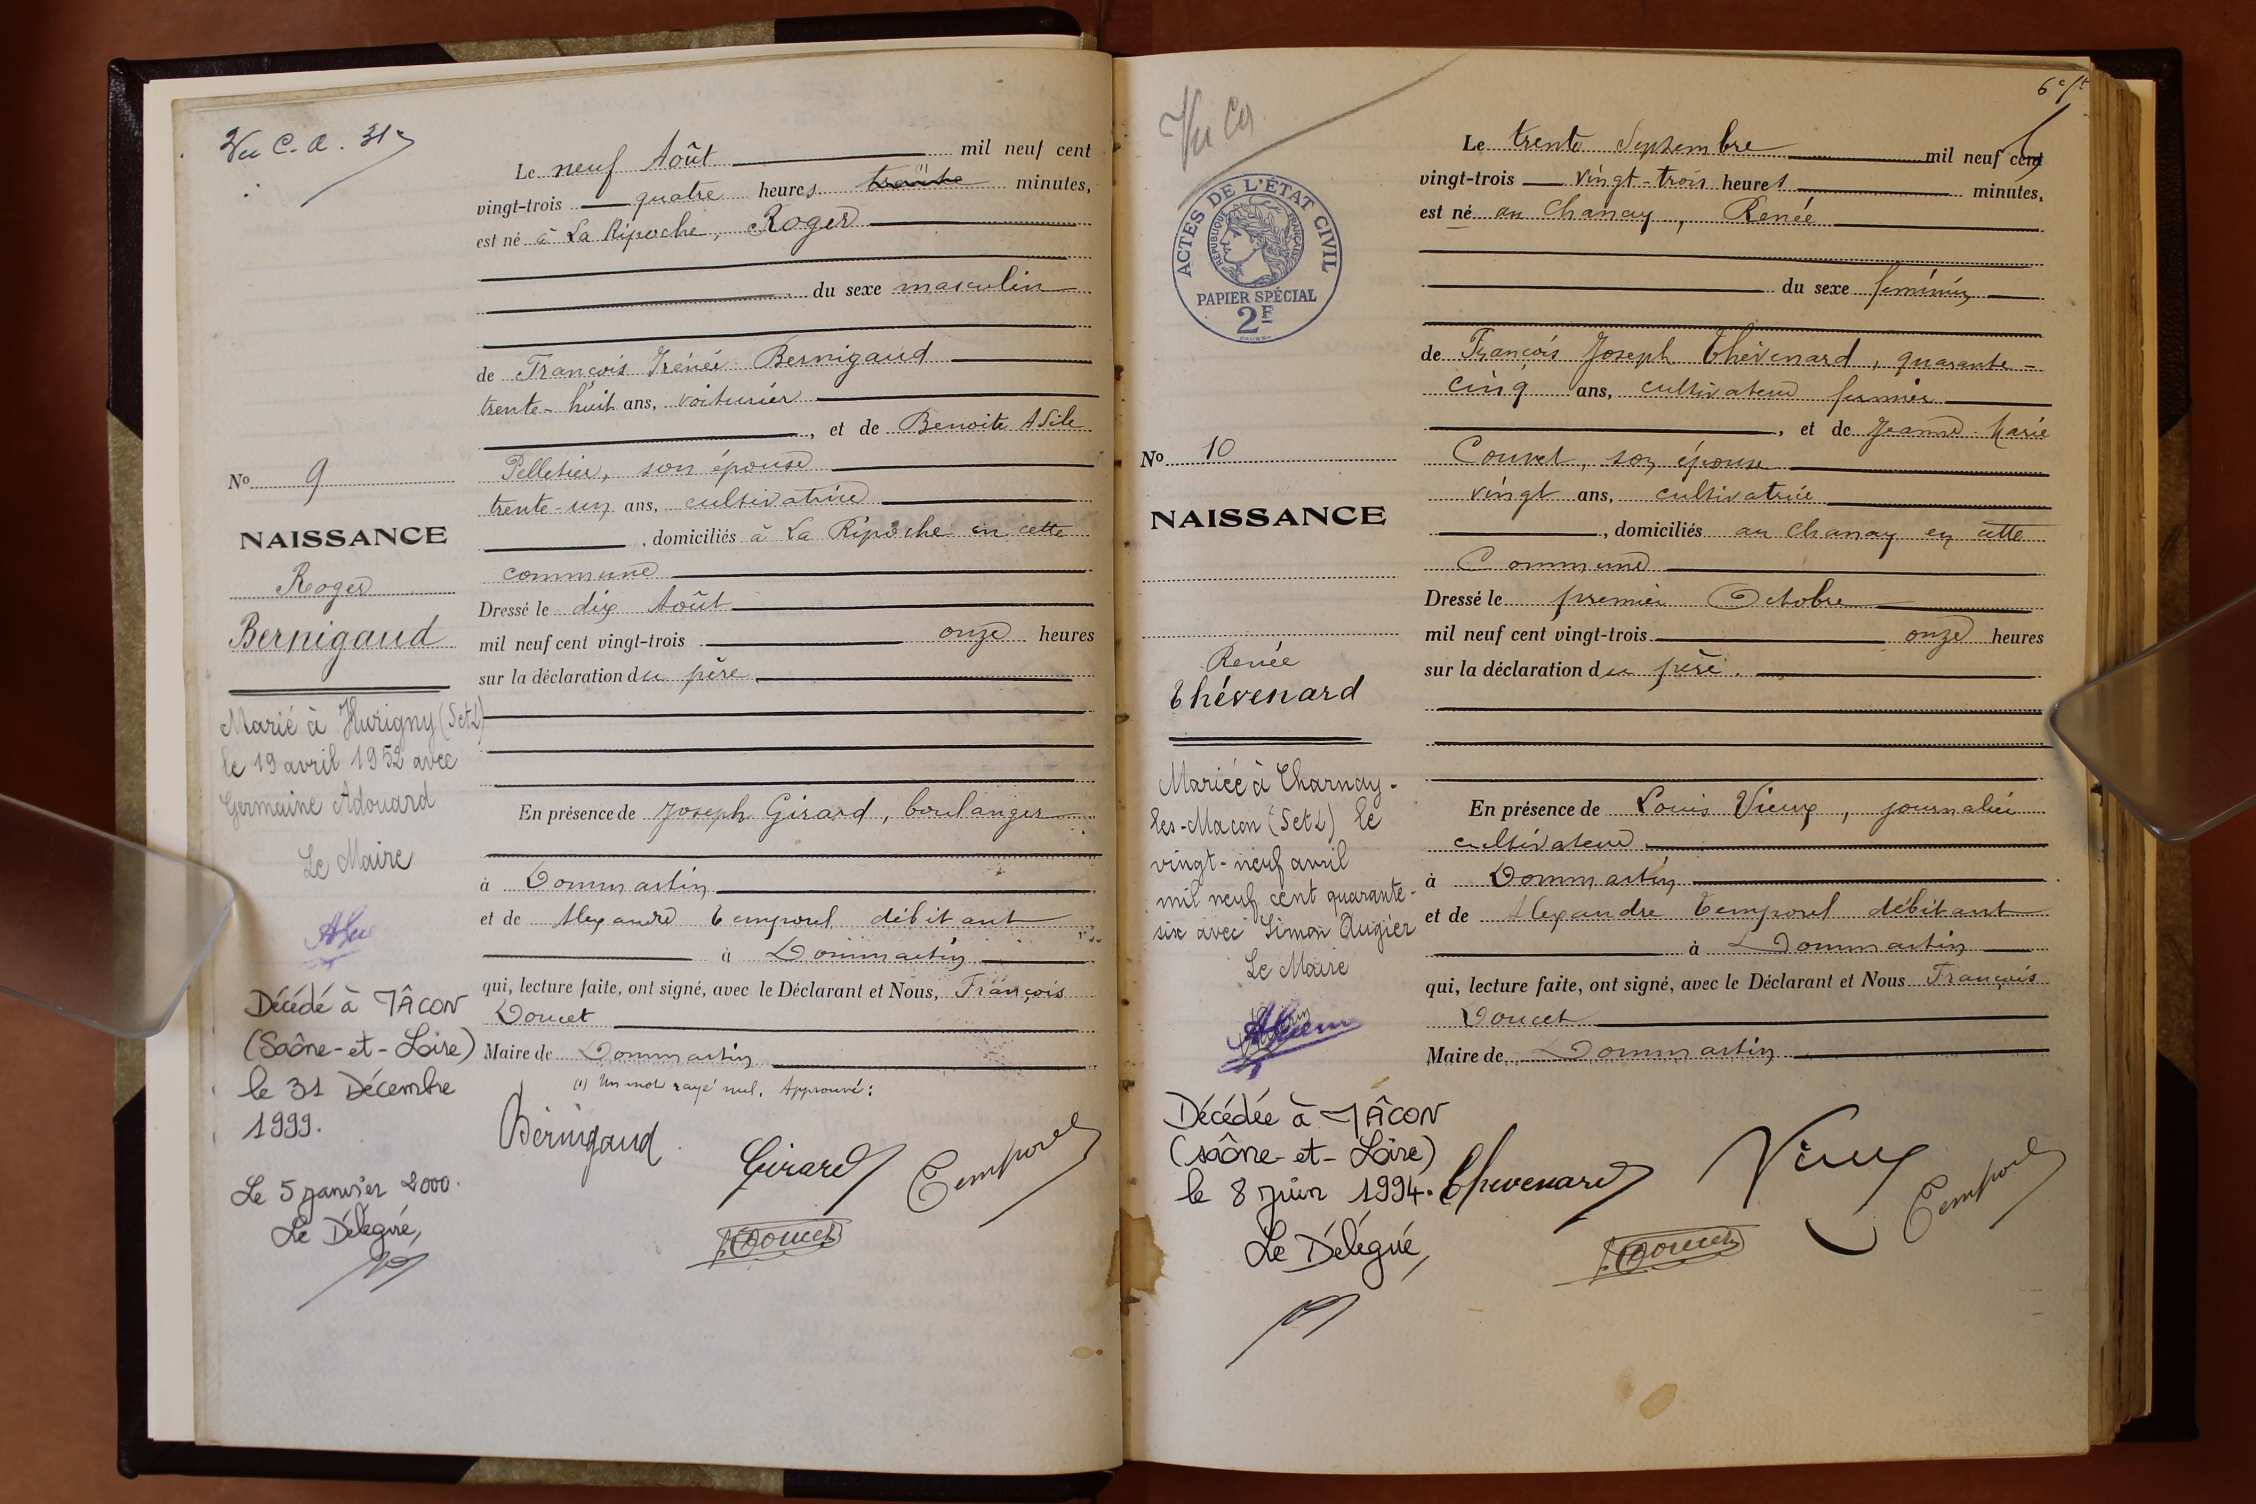 Vu C. A. 31
Le neuf Août mil neuf cent
vingt-trois quatre heures trente minutes,
est né à La Ripoche, Roger
du sexe masculin
de François Irénée Bernigaud
trente-huit ans, voiturier
, et de Benoite Adile
Pelletier, son épouse
trente-un ans, cultivatrice
, domiciliés à La Ripoche en cette
commune
Dressé le dix Août
mil neuf cent vingt-trois onze heures
sur la déclaration du père
En présence de Joseph Girard, boulanger
à Dommartin
et de Alexandre Temporel débitant
à Dommartin
qui, lecture faite, ont signé, avec le Déclarant et Nous, François
Doucet
Maire de Dommartin
(1) Un mot rayé nul. Approuvé :
Bernigaud
Girard
Temporel
Doucet
No 9
NAISSANCE
Roger
Bernigaud
Marié à Hurigny (S et L)
le 19 avril 1952 avec
Germaine Adouard
Le Maire
Décédé à MÂCON
(Saône-et-Loire)
le 31 Décembre
1999.
Le 5 janvier 2000.
Le Délégué,
6e ft
Vu Ca
ACTES DE L'ÉTAT CIVIL
RÉPUBLIQUE FRANÇAISE
PAPIER SPÉCIAL
2F
Le trente Septembre mil neuf cent
vingt-trois vingt-trois heures minutes,
est né au Chanay, Renée
du sexe féminin
de François Joseph Thévenard, quarante-
cinq ans, cultivateur fermier
, et de Jeanne Marie
Couvet, son épouse
vingt ans, cultivatrice
, domiciliés au Chanay en cette
Commune
Dressé le premier Octobre
mil neuf cent vingt-trois onze heures
sur la déclaration du père.
En présence de Louis Vieux, journalier
cultivateur
à Dommartin
et de Alexandre Temporel débitant
à Dommartin
qui, lecture faite, ont signé, avec le Déclarant et Nous François
Doucet
Maire de Dommartin
Thevenard
Vieux
Temporel
Doucet
No 10
NAISSANCE
Renée
Thévenard
Mariée à Charnay-
les-Macon (S et L) le
vingt-neuf avril
mil neuf cent quarante-
six avec Simon Augier
Le Maire
Décédée à MÂCON
(Saône-et-Loire)
le 8 juin 1994.
Le Délégué,